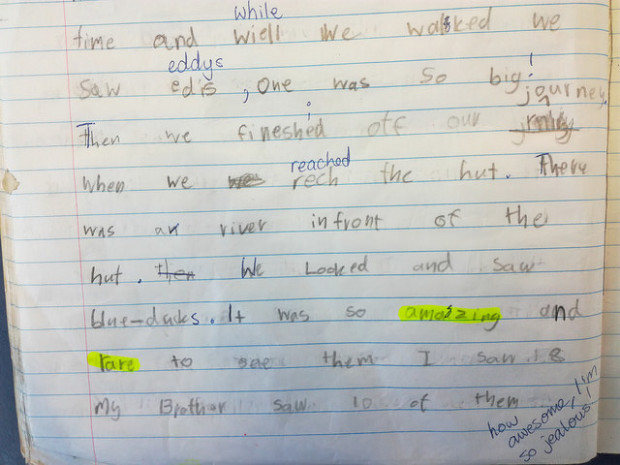 while
time and wiell we walked we
eddys
saw edis, one was so big!
journey.
Then we fineshed off our
reached
when we rech the hut. There
was an river infront of the
hut. then We Looked and saw
blue-ducks. It was so amazing and
rare to see them I saw 8
My Brother saw 10 of them
how awesome, I'm so jealous!